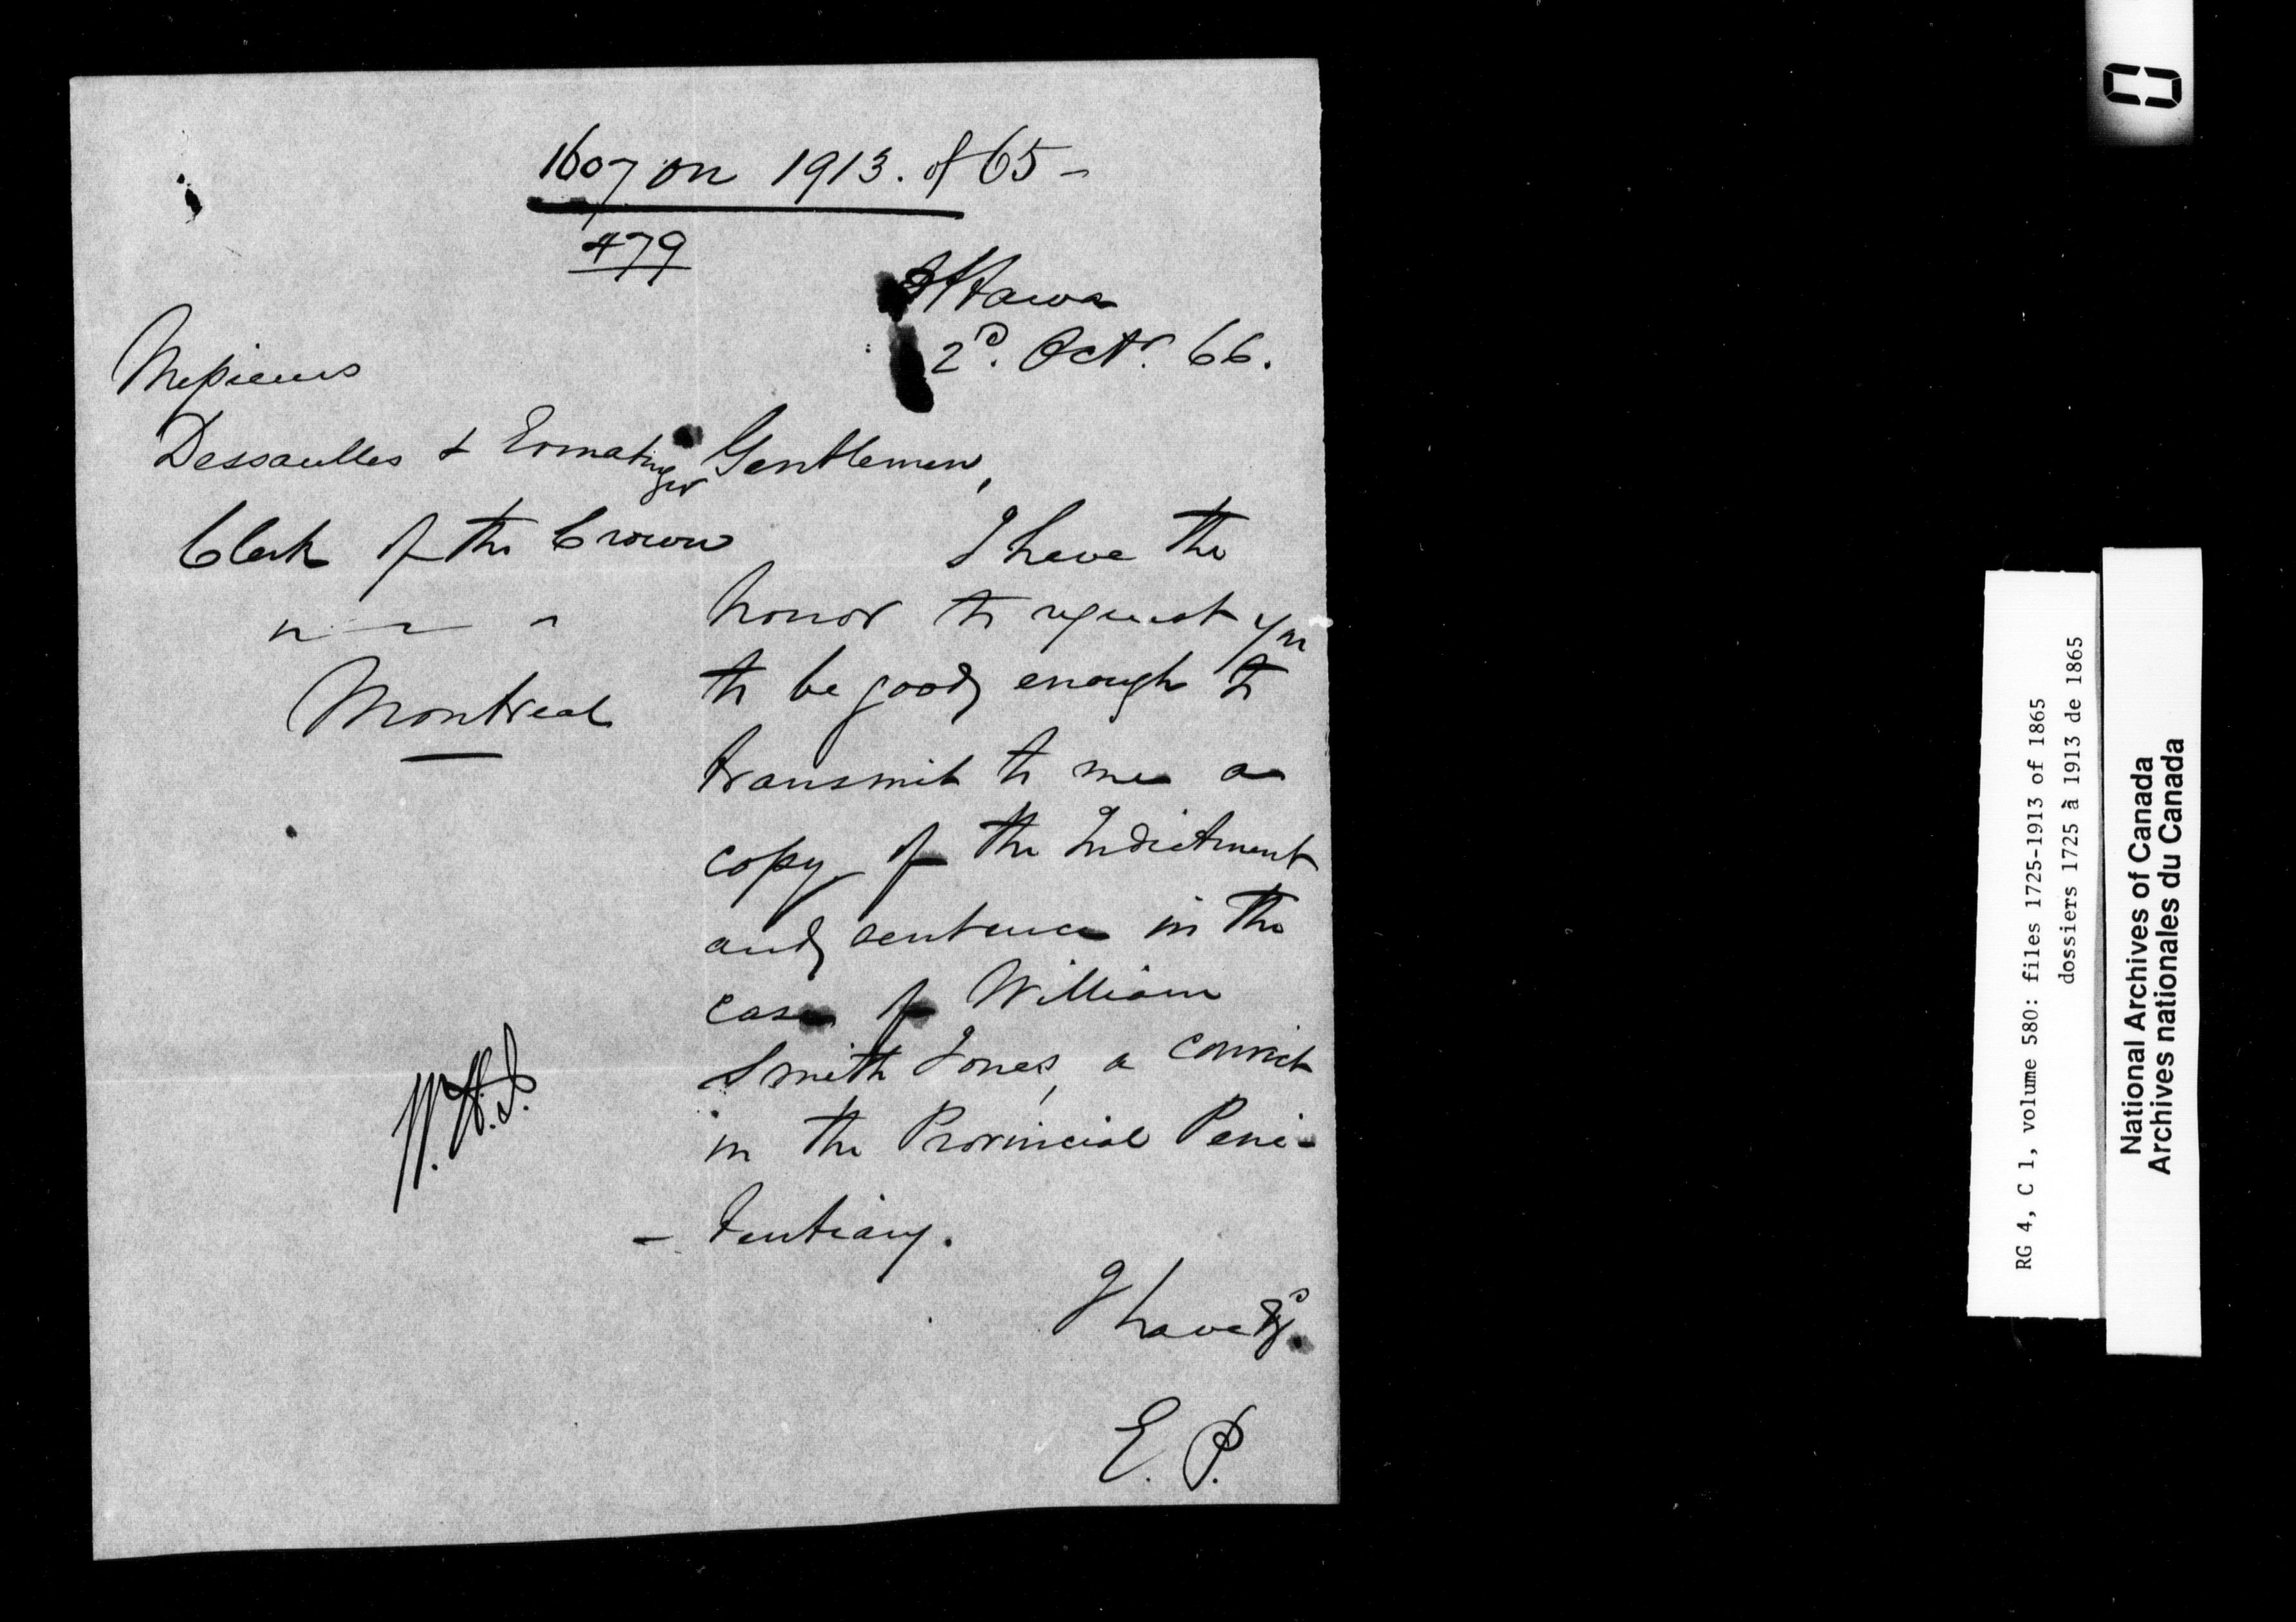 1607 on 1913. of 65 -
479
Ottawa
2d. Octr. 66.
Messieurs
Dessaulles & Ermatinger
Clerk of the Crown
" " "
Montreal
Gentlemen,
I have the
honor to request you
to be good enough to
transmit to me a
copy of the Indictment
and sentence in the
case of William
Smith Jones, a convict
in the Provincial Peni-
- tentiary.
I have &c.
E. P.
RG 4, C 1, volume 580: files 1725-1913 of 1865
dossiers 1725 à 1913 de 1865
National Archives of Canada
Archives nationales du Canada